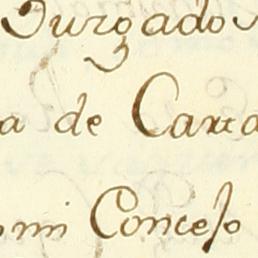 Juzgados
a de Carta
omi Concejo